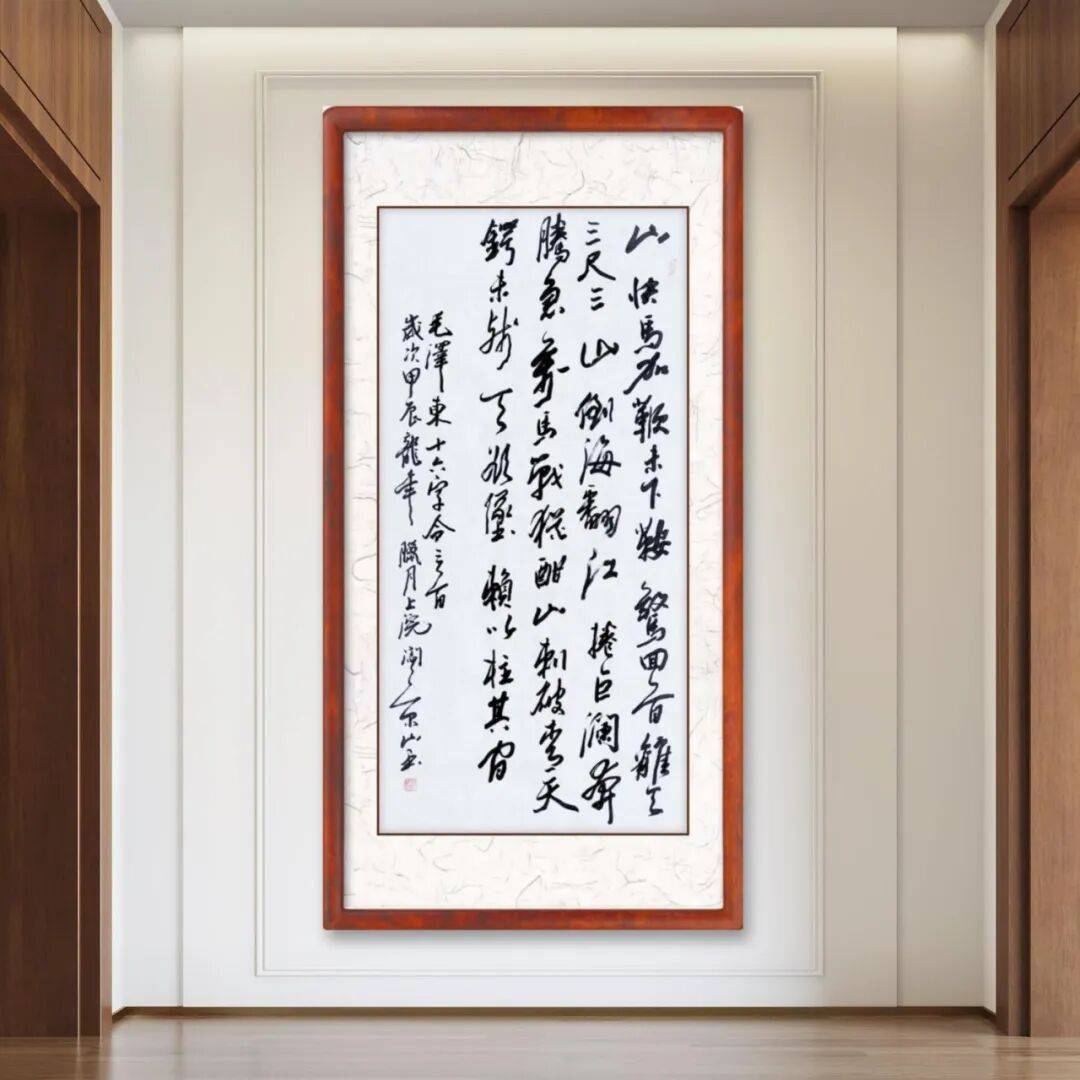 山快馬加鞭未下鞍驚回首離天
三尺三山倒海翻江捲巨瀾奔
騰急萬馬戰猶酣山刺破青天
鍔未殘天欲墮賴以柱其間
毛澤東十六字令三首
歲次甲辰龍年臘月上浣京山書